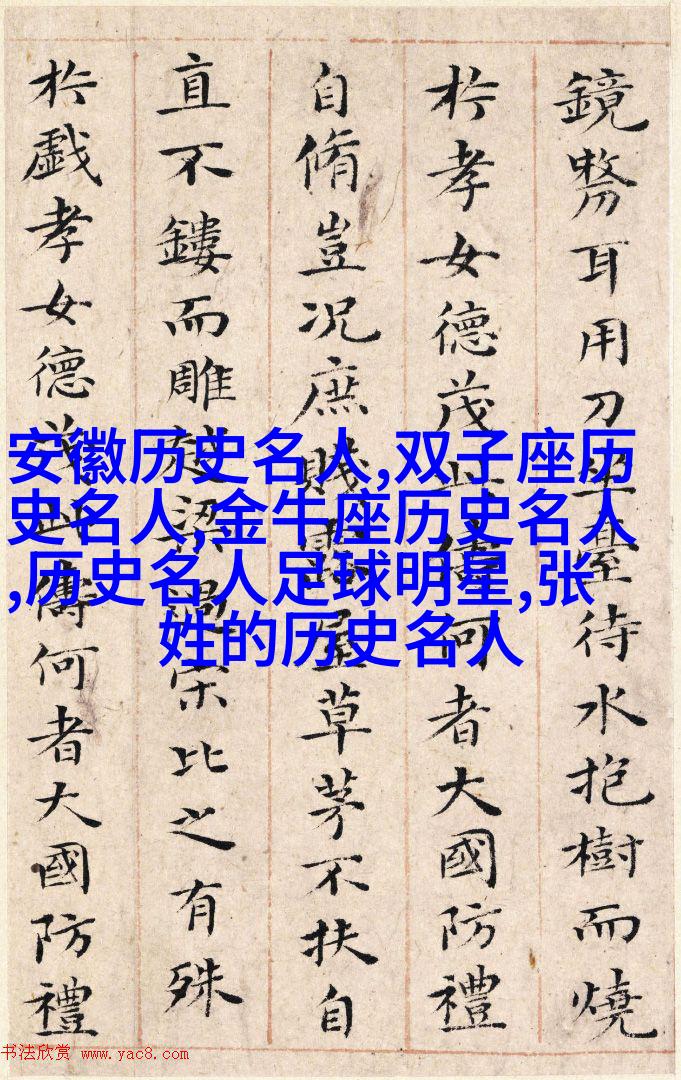 鏡剺耳用刀坐臺待水抱樹而燒
於孝女德茂此儔何者大國防禮
自脩豈況庶賤露屋草茅不扶自
直不鏤而雕越梁過宋比之有殊
於戲孝女德茂此儔何者大國防禮
安徽历史名人,双子座历
史名人,金牛座历史名人
,历史名人足球明星,张
姓的历史名人
书法欣赏 www.yac8.com